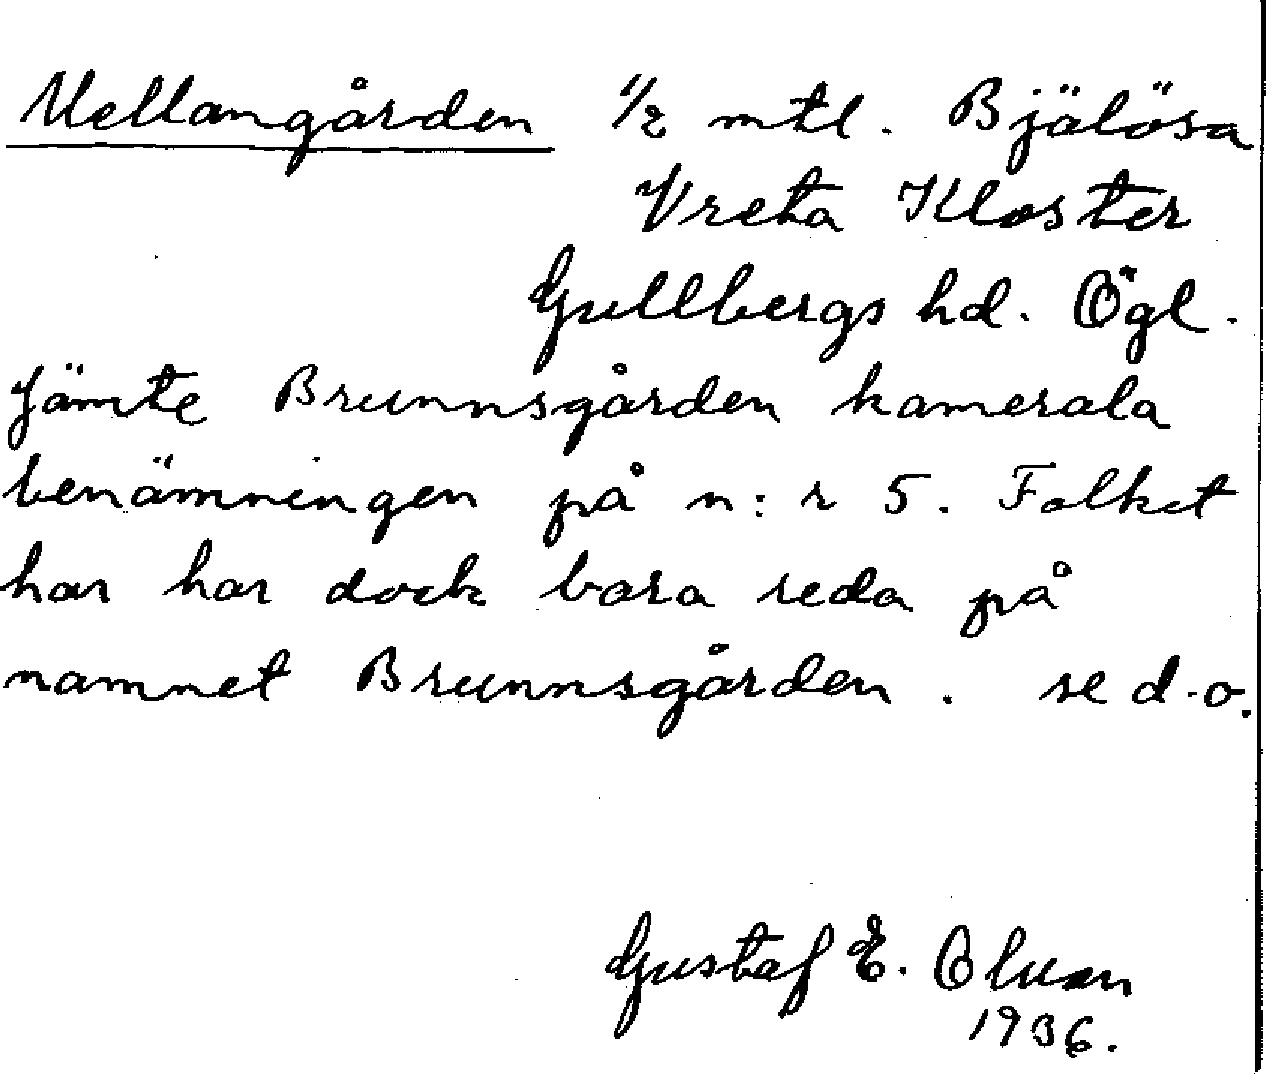 Mellangården 1/2 mtl. Bjälösa
Vreta Kloster
Gullbergs hd. Ögl.
Jämte Brunnsgården kamerala
benämningen på n:r 5. Folket
har har dock bara reda på
namnet Brunnsgården. se d.o.
Gustaf E.
1936.